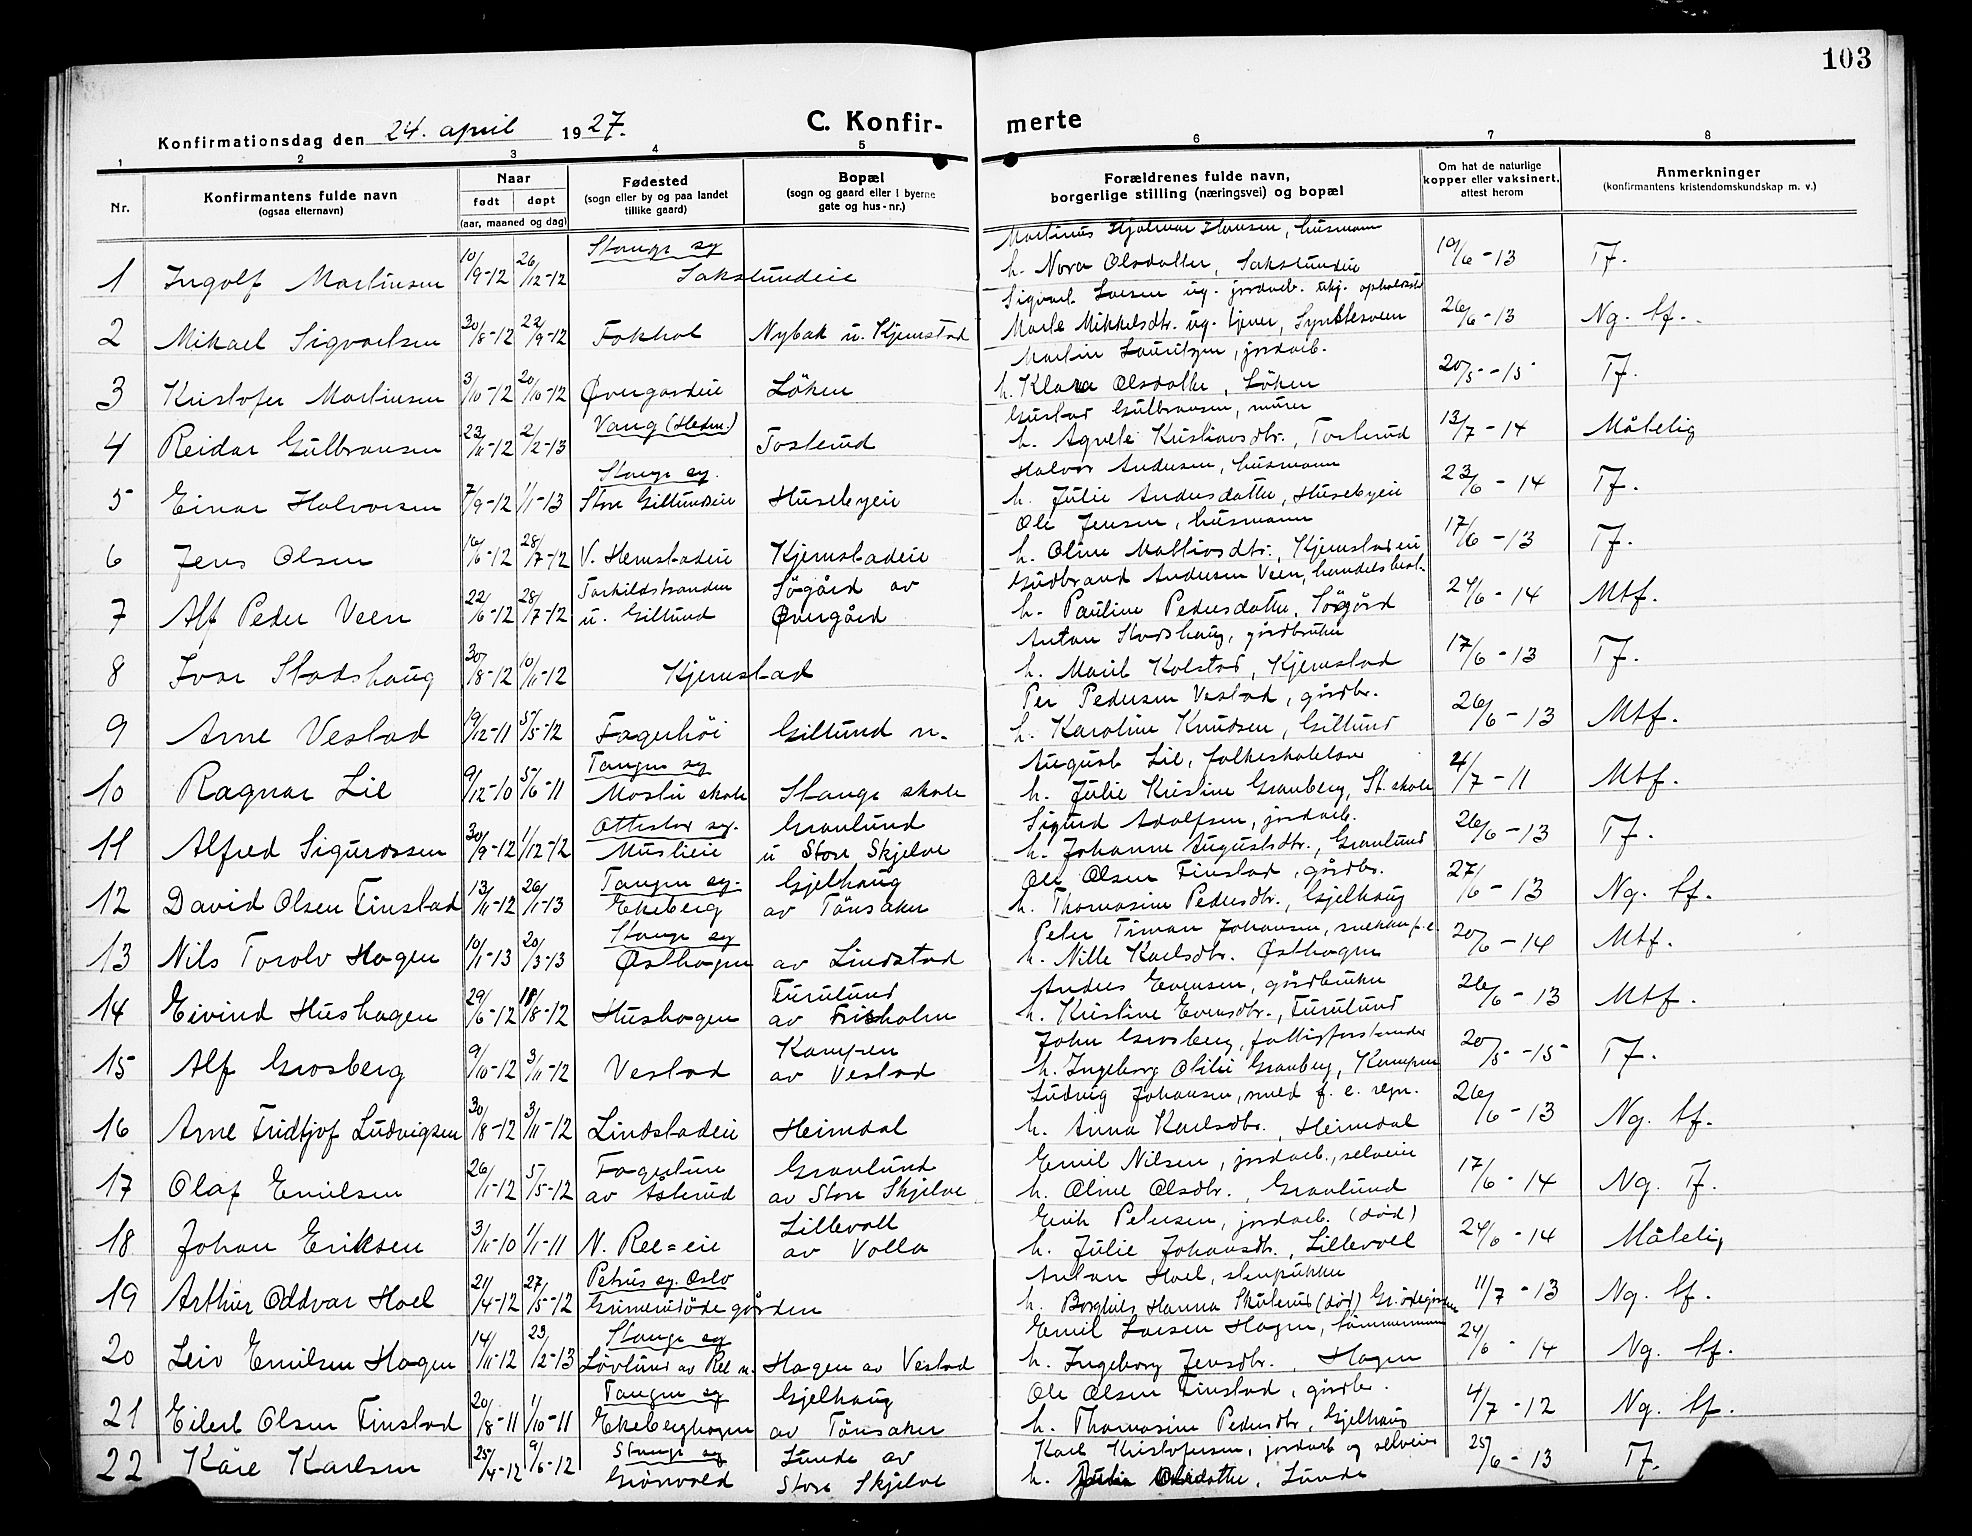 103
Konfirmationsdag den 24. april 1927.
C. Konfir-
merte
1 2 3 4 5 6 7 8
Nr.
Konfirmantens fulde navn
(ogsaa efternavn)
Naar
født døpt
(aar, maaned og dag)
Fødested
(sogn eller by og paa landet
tillike gaard)
Bopæl
(sogn og gaard eller i byerne
gate og hus-nr.)
Forældrenes fulde navn,
borgerlige stilling (næringsvei) og bopæl
Om hat de naturlige
kopper eller vaksinert,
attest herom
Anmerkninger
(konfirmantens kristendomskundskap m. v.)
Stange sg Martinus Hjalmar Hansen, husmann
1 Ingolf Martinsen 10/9-12 26/12-12 Sakslundeie h. Nora Olsdatter, Sakslundeie 19/6-13 Tf.
Sigvart Larsen ug. jordarb.
2 Mikael Sigvartsen 30/8-12 22/9-12 Fokhol Nybak u. Kjemstad Marte Mikkelsdtr. ug. tjener, 26/6-13 Ng. tf.
Martin Lauritzen, jordarb.
3 Kristofer Martinsen 3/10-12 20/10-12 Øvergardeie Löken h. Klara Olsdatter, Löken 20/5-15 Tf.
Vang (Hedm.) Gustav Gulbransen, murer
4 Reidar Gulbransen 23/11-12 2/2-13 Tosterud h. Agnete Kristiansdtr., Tosterud 13/7-14 Måtelig
Stange sg. Halvor Andersen, husmann
5 Einar Halvorsen 7/9-12 1/1-13 Store Gillundseie Husebyeie h. Julie Andersdatter, Husebyeie 23/6-14 Tf.
Ole Jensen, husmann
6 Jens Olsen 16/6-12 28/7-12 V. Hemstadeie Kjemstadeie h. Oline Mathisdtr., Kjemstadeie 17/6-13 Tf.
Torkildstranden Søgård av Gudbrand Andersen Veen, handelsbest.
7 Alf Peder Veen 22/6-12 28/7-12 u. Gillund Øvergård h. Pauline Pedersdatter, Søgård 24/6-14 Mtf.
Anton Stadshaug, gårdbruker
8 Ivar Stadshaug 30/8-12 10/11-12 Kjemstad h. Marit Kolstad, Kjemstad 17/6-13 Tf.
Per Pedersen Vestad, gårdbr.
9 Arne Vestad 19/12-11 5/5-12 Fagerhöi Gillund n. h. Karoline Knudsen, Gillund 26/6-13 Mtf.
Tangen sg August Lie, folkeskolelær
10 Ragnar Lie 9/12-10 5/6-11 Mostu skole Stange skole h. Julie Kristine Granberg, St. skole 4/7-11 Mtf.
Ottestad sg. Granlund Sigurd Adolfsen, jordarb.
11 Alfred Sigurdssen 30/9-12 1/12-12 Muslieie u Store Skjelve h. Johanne Augustsdtr., Granlund 26/6-13 Tf.
Tangen sg. Gjelhaug Ole Olsen Finstad, gårdbr.
12 David Olsen Finstad 13/11-12 26/1-13 Ekeberg av Tönsaker h. Thomasine Pedersdtr., Gjelhaug 27/6-13 Ng. tf.
Stange sg Peter Timan Johansen, snekker f.e.
13 Nils Torolv Hagen 10/1-13 20/3-13 Østhagen av Lindstad h. Nille Karlsdtr. Østhagen 20/6-14 Mtf.
Furulund Anders Evensen, gårdbruker
14 Eivind Hushagen 29/6-12 18/8-12 Hushagen av Frisholm h. Kristine Evensdtr., Furulund 26/6-13 Mtf.
Kampen John Grosberg, fattigforstander
15 Alf Grosberg 9/10-12 3/11-12 Vestad av Vestad h. Ingeborg Otilie Granberg, Kampen 20/5-15 Tf.
Ludvig Johansen, smed f. e. regn.
16 Arne Fridtjof Ludvigsen 30/8-12 3/11-12 Lindstadeie Heimdal h. Anna Karlsdtr., Heimdal 26/6-13 Ng. tf.
Fagerlun Granlund Emil Nilsen, jordarb., selveier
17 Olaf Emilsen 26/1-12 5/5-12 av Åsterud av Store Skjelve h. Oline Olsdtr., Granlund 17/6-14 Ng. Tf.
Lillevoll Erik Petersen, jordarb. (död)
18 Johan Eriksen 3/11-10 1/1-11 N. Rel=eie av Volla h. Julie Johansdtr., Lillevoll 24/6-14 Måtelig
Petrus sg. Oslo Anton Hoel, stenpukker
19 Arthur Oddvar Hoel 21/4-12 27/5-12 Grimerudödegården h. Borghild Hanna Skulerud (död) Gr. ödegården 11/7-13 Ng. tf.
Stange sg Emil Larsen Hagen, tömmermann
20 Leiv Emilsen Hagen 14/11-12 23/2-13 Lövlund av Rel n. Hagen av Vestad h. Ingeborg Jensdtr., Hagen 24/6-14 Ng. tf.
Tangen sg Gjelhaug Ole Olsen Finstad, gårdbr.
21 Eilert Olsen Finstad 20/8-11 1/10-11 Ekeberghagen av Tönsaker h. Thomasine Pedersdtr, Gjelhaug 4/7-12 Ng. tf.
Stange sg Lunde av Karl Kristofersen, jordarb og selveier
22 Kåre Karlsen 25/4-12 9/6-12 Grönvold Store Skjelve h. Julia Olsdatter, Lunde 25/6-13 Tf.